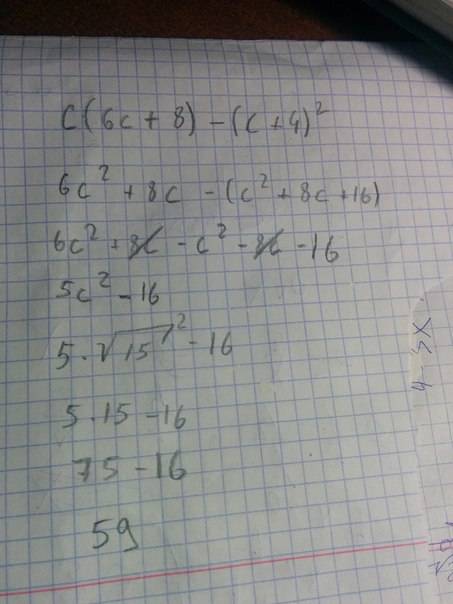 c(6c + 8) - (c + 4)²
6c² + 8c - (c² + 8c + 16)
6c² + 8c - c² - 8c - 16
5c² - 16
5 · √15² - 16
5 · 15 - 16
75 - 16
59
4 - 3x